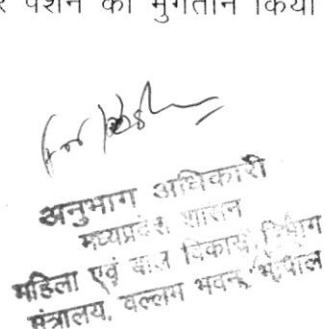 पेंशन का भुगतान किया
अनुभाग अधिकारी
मध्यप्रदेश शासन
महिला एवं बाल विकास विभाग
मंत्रालय, वल्लभ भवन, भोपाल